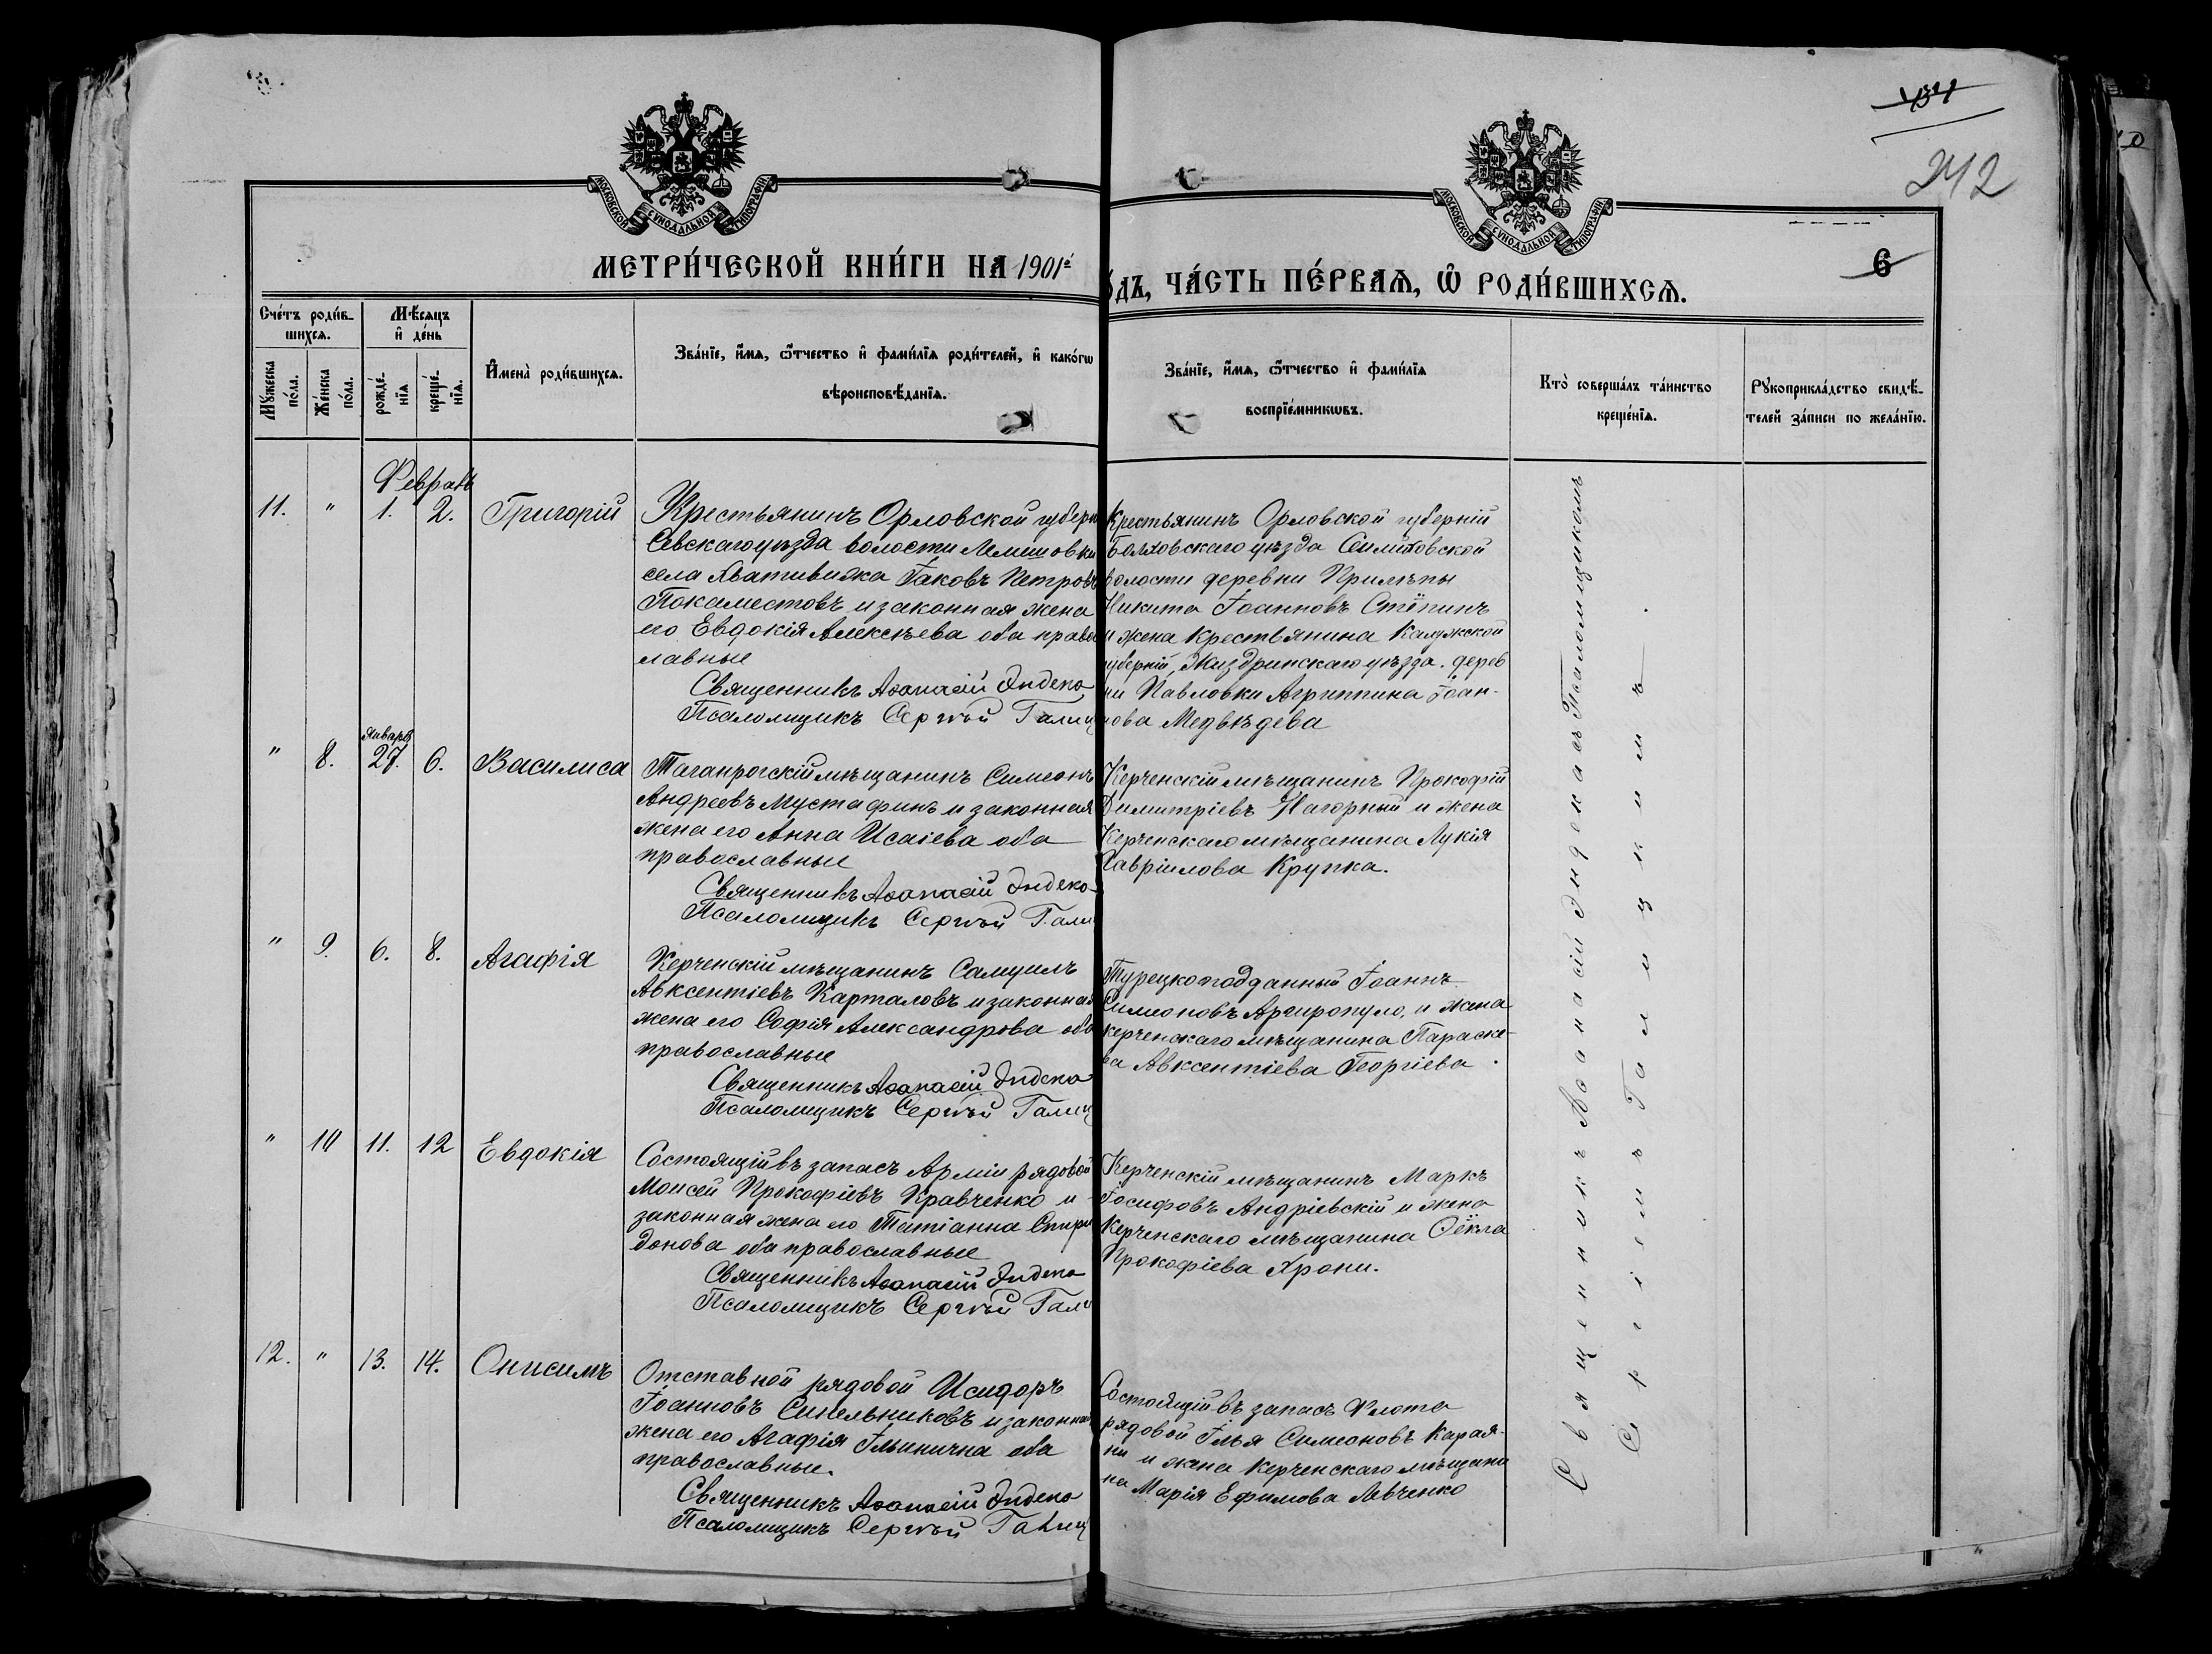 434
242
6
МОСКОВСКОЙ СУНОДАЛЬНОЙ ТИПОГРАФІИ
МОСКОВСКОЙ СУНОДАЛЬНОЙ ТИПОГРАФІИ
МЕТРИ́ЧЕСКОЙ КНИ́ГИ НА 1901й
О́ДЪ, ЧА́СТЬ ПЕ́РВАѦ, Ѡ҆ РОДИ́ВШИХСѦ.
Сче́тъ роди́в-
шихсѧ.
Мꙋ́жеска по́ла.
Же́нска по́ла.
Мѣ́сѧцъ
и҆ де́нь
рожде́-
нїѧ
креще́-
нїѧ.
И҆мена̀ роди́вшихсѧ.
Зва́нїе, и҆́мѧ, ѻ҆́тчество и҆ фами́лїѧ роди́телей, и҆ како́гѡ
вѣроисповѣ́данїѧ.
Зва́нїе, и҆́мѧ, ѻ҆́тчество и҆ фами́лїѧ
воспрїе́мникѡвъ.
Кто̀ соверша́лъ та́инство
креще́нїѧ.
Рꙋкоприкла́дство свидѣ́-
телей за́писи по жела́нїю.
Февраль
11. " 1. 2. Григорій
Крестьянинъ Орловской губерн
Севскаго уѣзда волости Лемешовки
села Хвативижа Іаковъ Петровъ
Покаместовъ и законная жена
его Евдокія Алексѣева оба право
славные
Священникъ Аѳанасій Индеко
Псаломщикъ Сергѣй Галиц
Крестьянинъ Орловской губерній
Болховскаго уѣзда
волости деревни Прилѣпы
Никита Іоанновъ Стёпинъ
и жена крестьянина Калужской
губерній, Жиздринскаго уѣзда. дерев
ни Павловки Агриппина Іоан-
нова Медвѣдева
" 8. Январь 27. 6. Василиса
Таганрогскій мѣщанинъ Симеонъ
Андреевъ Мустафинъ и законная
жена его Анна Исаіева оба
православные
Священникъ Аѳанасій Индеко
Псаломщикъ Сергѣй Гали
Керченскій мѣщанинъ Прокофій
Димитріевъ Нагорный и жена
Керченскаго мѣщанина Лукія
Гавріилова Крупка.
" 9. 6. 8. Агафія
Керченскій мѣщанинъ Самуилъ
Авксентіевъ Карталовъ и законная
жена его Софія Александрова оба
православные
Священникъ Аѳанасій Индеко
Псаломщикъ Сергѣй Галиц
Турецкоподданный Іоаннъ
Симеоновъ Аргиропуло, и жена
керченскаго мѣщанина Параске-
ва Авксентіева Георгіева.
" 10 11. 12 Евдокія
Состоящій въ запасѣ Арміи рядовой
Моисей Прокофіевъ Кравченко и
законная жена его Татіанна Спири
донова оба православные
Священникъ Аѳанасій Индеко
Псаломщикъ Сергѣй Гали
Керченскій мѣщанинъ Маркъ
Іосифовъ Андріевскій и жена
Керченскаго мѣщанина Ѳёкла
Прокофіева Хрони.
12. " 13. 14. Онисимъ
Отставной рядовой Исидоръ
Іоанновъ Синельниковъ и законная
жена его Агафія Ільинична оба
православные.
Священникъ Аѳанасій Индеко
Псаломщикъ Сергѣй Галиц
Состоящій въ запасѣ Флота
рядовой Ілья Симеоновъ Карая-
ни и жена Керченскаго мѣщани
на Марія Ефимова Левченко
Священникъ Аѳанасій Индека съ Псаломщикомъ
Сергіемъ Галицкимъ.